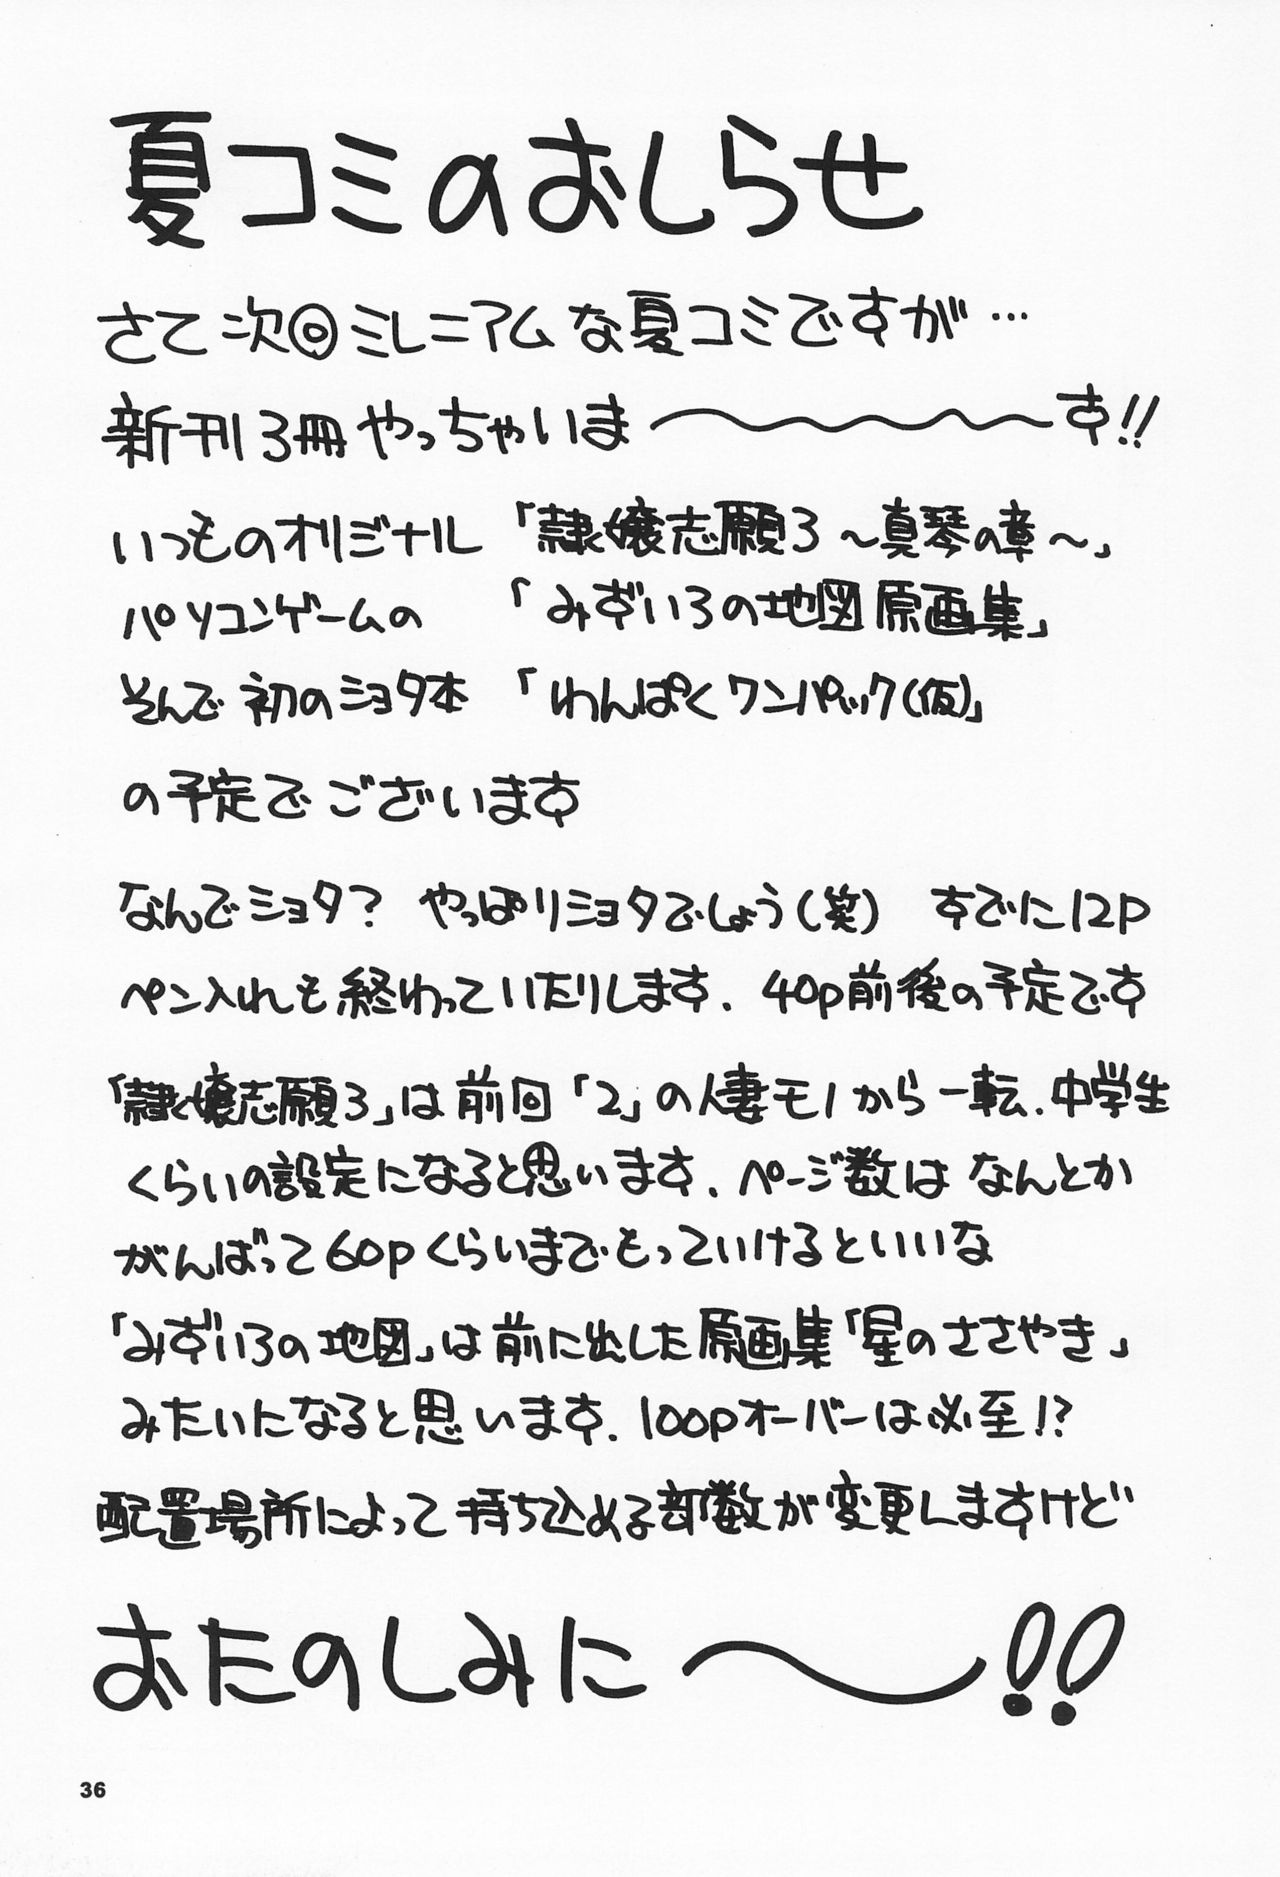 夏コミのおしらせ
さて次回ミレニアムな夏コミですが…
新刊3冊やっちゃいま〜〜〜す!!
いつものオリジナル 「隷嬢志願3〜真琴の章〜」
パソコンゲームの 「みずいろの地図 原画集」
そんで初のショタ本 「わんぱくワンパック(仮)」
の予定でございます
なんでショタ? やっぱりショタでしょう(笑) すでに12p
ペン入れも終わっていたりします. 40p前後の予定です
「隷嬢志願3」は前回「2」の人妻モノから一転.中学生
くらいの設定になると思います.ページ数はなんとか
がんばって60pくらいまでもっていけるといいな
「みずいろの地図」は前に出した原画集「星のささやき」
みたいになると思います.100pオーバーは必至!?
配置場所によって持ち込める部数が変更しますけど
おたのしみに〜!!
36